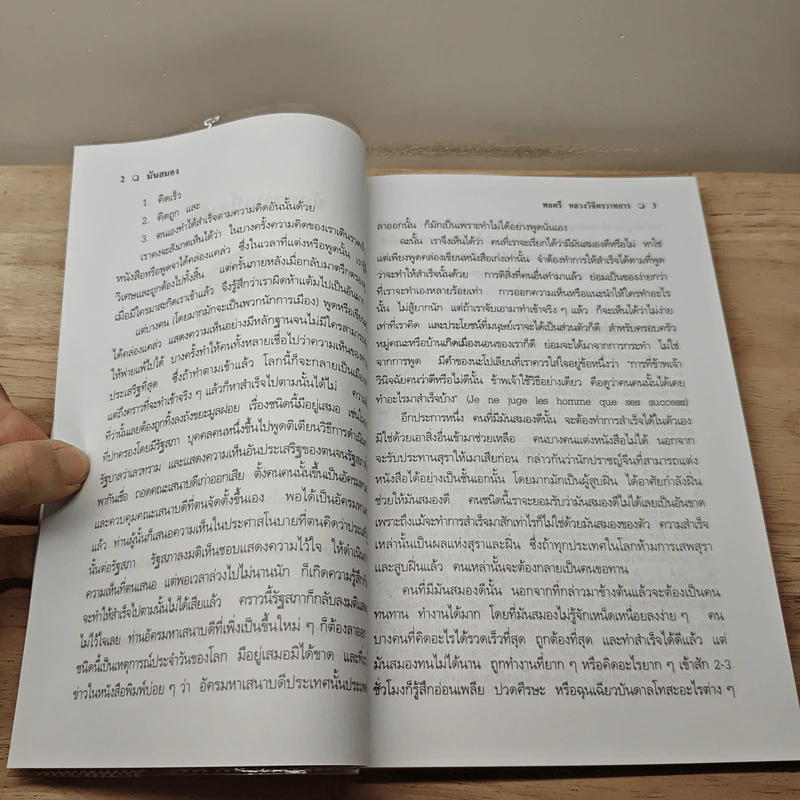 2 ❏ มันสมอง
1. คิดเร็ว
2. คิดถูก และ
3. ตนเองทำได้สำเร็จตามความคิดอันนั้นด้วย
เราคงจะสังเกตเห็นได้ว่า ในบางครั้งความคิดของเราเดินรวดเร็ว
หนังสือหรือพูดจาได้คล่องแคล่ว ซึ่งในเวลาที่แต่งหรือพูดนั้น
วิเศษและถูกต้องไปทั้งสิ้น แต่ครั้นภายหลังเมื่อกลับมาตรึกตรอง
เมื่อมีใครมาสะกิดเราเข้าแล้ว จึงรู้สึกว่าเราผิดห้าแต้มไปเป็นอันมาก
แต่บางคน (โดยมากมักจะเป็นพวกนักการเมือง) พูดหรือเขียน
ได้คล่องแคล่ว แสดงความเห็นอย่างมีหลักฐานจนไม่มีใครสามารถ
ให้พ่ายแพ้ไปได้ บางครั้งทำให้คนทั้งหลายเชื่อไปว่าความเห็นของ
ประเสริฐที่สุด ซึ่งถ้าทำตามเข้าแล้ว โลกนี้ก็จะกลายเป็นเมือง
แต่ถึงคราวที่จะทำเข้าจริง ๆ แล้วก็หาสำเร็จไปตามนั้นได้ไม่
ที่ว่านั้นเลยต้องถูกทิ้งลงถังขยะมูลฝอย เรื่องชนิดนี้มีอยู่เสมอ เช่น
ที่ปกครองโดยมีรัฐสภา บุคคลคนหนึ่งขึ้นไปพูดติเตียนวิธีการดำเนิน
รัฐบาลว่าเลวทราม และแสดงความเห็นอันประเสริฐของตนจนรัฐสภา
พากันเชื่อ ถอดคณะเสนาบดีเก่าออกเสีย ตั้งคนคนนั้นขึ้นเป็นอัครมหา
และควบคุมคณะเสนาบดีที่ตนจัดตั้งขึ้นเอง พอได้เป็นอัครมหา
แล้ว ท่านผู้นั้นก็เสนอความเห็นในประศาสโนบายที่ตนคิดว่าประเสริฐ
นั้นต่อรัฐสภา รัฐสภาลงมติเห็นชอบแสดงความไว้ใจ ให้ดำเนิน
ความเห็นที่ตนเสนอ แต่พอเวลาล่วงไปไม่นานนัก ก็เกิดความรู้สึก
จะทำให้สำเร็จไปตามนั้นไม่ได้เสียแล้ว คราวนี้รัฐสภาก็กลับลงมติแสดง
ไม่ไว้ใจเลย ท่านอัครมหาเสนาบดีที่เพิ่งเป็นขึ้นใหม่ ๆ ก็ต้องลาออก
ชนิดนี้เป็นเหตุการณ์ประจำวันของโลก มีอยู่เสมอมิได้ขาด และที่
ข่าวในหนังสือพิมพ์บ่อย ๆ ว่า อัครมหาเสนาบดีประเทศนั้นประเทศ
พลตรี หลวงวิจิตรวาทการ ❏ 3
ลาออกนั้น ก็มักเป็นเพราะทำไม่ได้อย่างพูดนั่นเอง
ฉะนั้น เราจึงเห็นได้ว่า คนที่เราจะเรียกได้ว่ามีมันสมองดีหรือไม่ หาใช่
แต่เพียงพูดคล่องเขียนหนังสือเก่งเท่านั้น จำต้องทำการให้สำเร็จได้ตามที่พูด
ว่าจะทำให้สำเร็จนั้นด้วย การติสิ่งที่คนอื่นทำมาแล้ว ย่อมเป็นของง่ายกว่า
ที่เราจะทำเองหลายร้อยเท่า การออกความเห็นหรือแนะนำให้ใครทำอะไร
นั้น ไม่สู้ยากนัก แต่ถ้าเราจับเอามาทำเข้าจริง ๆ แล้ว ก็จะเห็นได้ว่าไม่ง่าย
เท่าที่เราคิด และประโยชน์ที่มนุษย์เราจะได้เป็นส่วนตัวก็ดี สำหรับครอบครัว
หมู่คณะหรือบ้านเกิดเมืองนอนของเราก็ดี ย่อมจะได้มาจากการกระทำ ไม่ใช่
จากการพูด มีคำของนะโปเลียนที่เราควรใส่ใจอยู่ข้อหนึ่งว่า "การที่ข้าพเจ้า
วินิจฉัยคนว่าดีหรือไม่ดีนั้น ข้าพเจ้าใช้วิธีอย่างเดียว คือดูว่าคนคนนั้นได้เคย
ทำอะไรมาสำเร็จบ้าง" (Je ne juge les homme que ses success)
อีกประการหนึ่ง คนที่มีมันสมองดีนั้น จะต้องทำการสำเร็จได้ในตัวเอง
มิใช่ด้วยเอาสิ่งอื่นเข้ามาช่วยเหลือ คนบางคนแต่งหนังสือไม่ได้ นอกจาก
จะรับประทานสุราให้เมาเสียก่อน กล่าวกันว่านักปราชญ์จีนที่สามารถแต่ง
หนังสือได้อย่างชั้นเอกนั้น โดยมากมักเป็นผู้สูบฝิ่น ได้อาศัยกำลังฝิ่น
ช่วยให้มันสมองดี คนชนิดนี้เราจะยอมรับว่ามันสมองดีไม่ได้เลยเป็นอันขาด
เพราะถึงแม้จะทำการสำเร็จมาสักเท่าไรก็ไม่ใช่ด้วยมันสมองของตัว ความสำเร็จ
เหล่านั้นเป็นผลแห่งสุราและฝิ่น ซึ่งถ้าทุกประเทศในโลกห้ามการเสพสุรา
และสูบฝิ่นแล้ว คนเหล่านั้นจะต้องกลายเป็นคนขอทาน
คนที่มีมันสมองดีนั้น นอกจากที่กล่าวมาข้างต้นแล้วจะต้องเป็นคน
ทนทาน ทำงานได้มาก โดยที่มันสมองไม่รู้จักเหน็ดเหนื่อยลงง่าย ๆ คน
บางคนที่คิดอะไรได้รวดเร็วที่สุด ถูกต้องที่สุด และทำสำเร็จได้ดีแล้ว แต่
มันสมองทนไม่ได้นาน ถูกทำงานที่ยาก ๆ หรือคิดอะไรยาก ๆ เข้าสัก 2-3
ชั่วโมงก็รู้สึกอ่อนเพลีย ปวดศีรษะ หรือฉุนเฉียวบันดาลโทสะอะไรต่าง ๆ